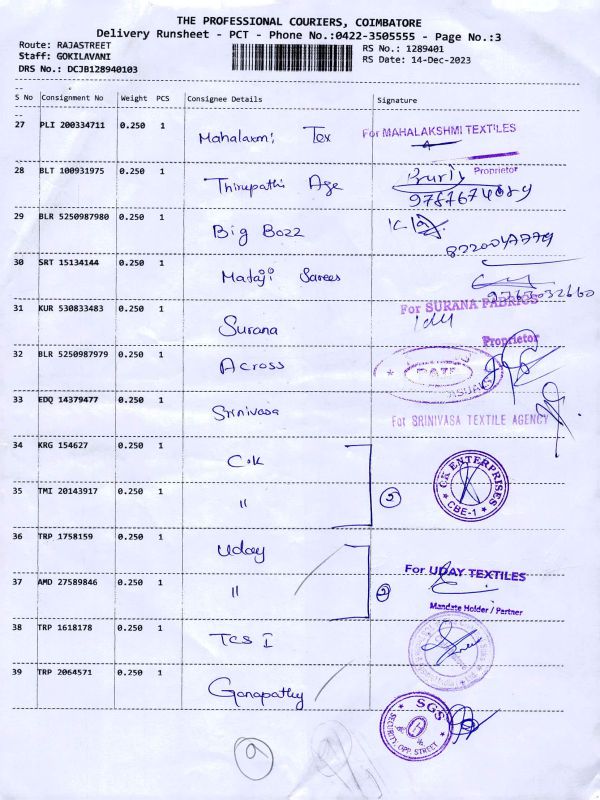 THE PROFESSIONAL COURIERS, COIMBATORE
Delivery Runsheet - PCT - Phone No.:0422-3505555 - Page No.:3
Route: RAJASTREET
RS No.: 1289401
Staff: GOKILAVANI
RS Date: 14-Dec-2023
DRS No.: DCJB128940103
S No Consignment No Weight PCS Consignee Details Signature
27 PLI 200334711 0.250 1 Mahalaxmi Tex For MAHALAKSHMI TEXTILES
Proprietor
28 BLT 100931975 0.250 1 Thirupathi Age
29 BLR 5250987980 0.250 1 Big Bozz
30 SRT 15134144 0.250 1 Mataji Sarees
31 KUR 530833483 0.250 1 Surana For SURANA FABRICS
Proprietor
32 BLR 5250987979 0.250 1 Across
33 EDQ 14379477 0.250 1 Srinivasa For SRINIVASA TEXTILE AGENCY
34 KRG 154627 0.250 1 C.K CK ENTERPRISES
CBE-1
35 TMI 20143917 0.250 1 " 2
36 TRP 1758159 0.250 1 Uday For UDAY TEXTILES
37 AMD 27589846 0.250 1 " 2
Mandate Holder / Partner
38 TRP 1618178 0.250 1 TCS I
39 TRP 2064571 0.250 1 Ganapathy SGS
9